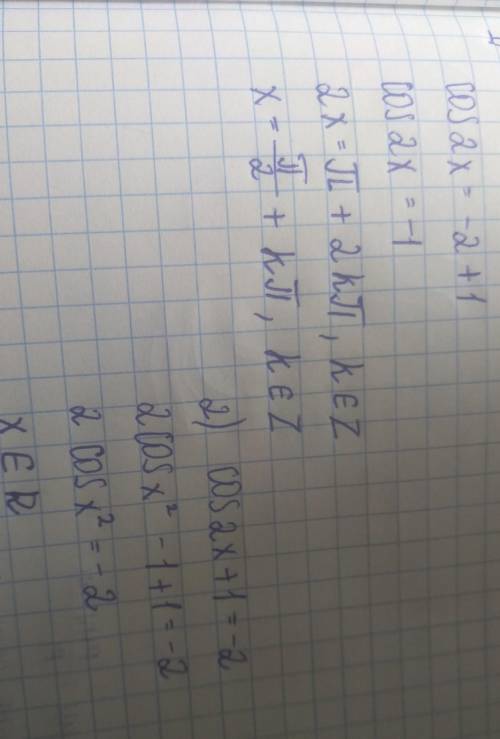 cos 2x = -2 + 1
cos 2x = -1
2x = π + 2kπ, k ∈ Z
x = π/2 + kπ, k ∈ Z
2) cos 2x + 1 = -2
2 cos x² - 1 + 1 = -2
2 cos x² = -2
x ∈ R